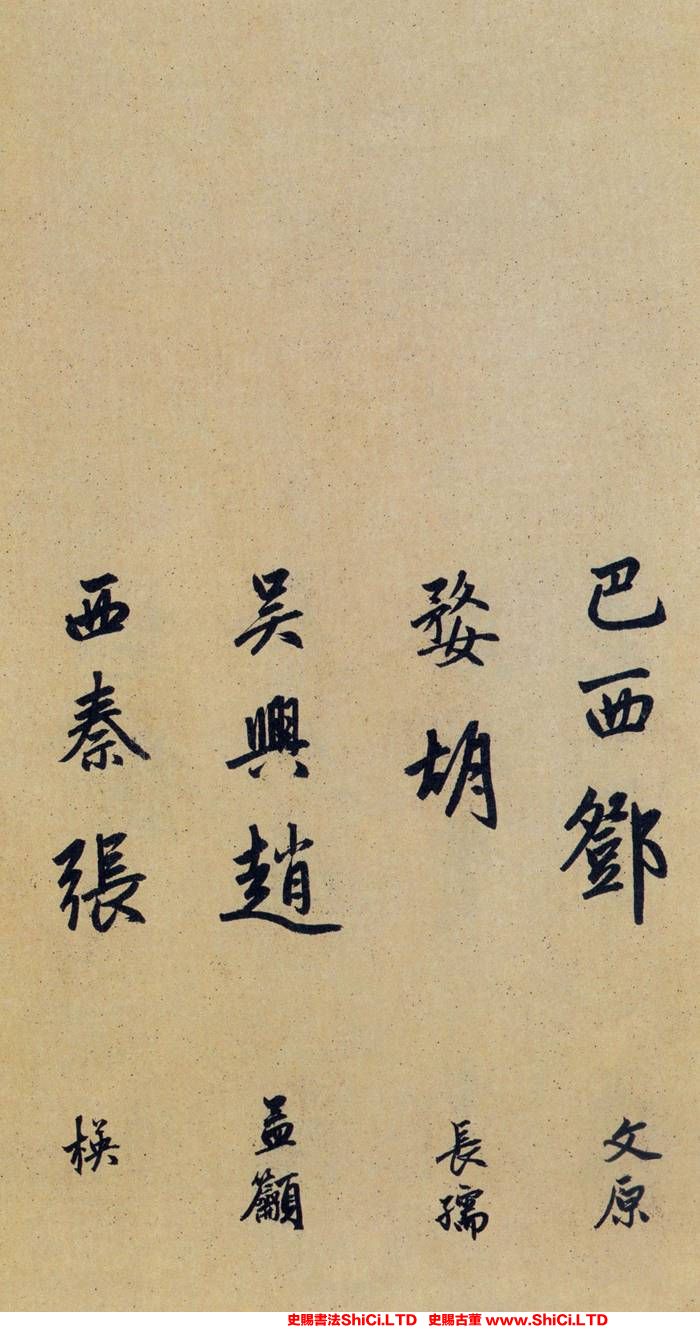 巴西鄧文原
婺胡長孺
吴興趙孟籲
西秦張楧
史賜書法ShiCi.LTD 史賜古董 www.ShiCi.LTD